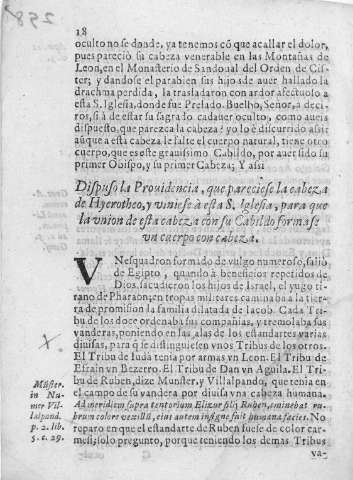 258
18
oculto no se donde, ya tenemos cõ que acallar el dolor,
pues pareciò su cabeza venerable en las Montañas de
Leon, en el Monasterio de Sandoual del Orden de Cis-
ter; y dandose el parabien sus hijos de auer hallado la
drachma perdida, la trasladaron con ardor afectuoso à
esta S. Iglesia, donde fue Prelado. Buelbo, Señor, a deci-
ros, si à de estar su sagrado cadauer oculto, como aueis
dispuesto, que parezca la cabeza? yo lo è discurrido assi:
aũque a esta cabeza le falte el cuerpo natural, tiene otro
cuerpo, que es este grauissimo Cabildo, por auer sido su
primer Obispo, y su primer Cabeza; Y assi
Dispuso la Prouidencia, que pareciese la cabeza
de Hyerotheo, y viniese à esta S. Iglesia, para que
la vnion de esta cabeza con su Cabildo formase
vn cuerpo con cabeza.
VN esquadron formado de vulgo numeroso, saliò
de Egipto, quando à beneficios repetidos de
Dios, sacudieron los hijos de Israel, el yugo ti-
rano de Pharaon; en tropas militares caminaba a la tier-
ra de promision la familia dilatada de Iacob. Cada Tri-
bu de los doce ordenaba sus compañias, y tremolaba sus
vanderas, poniendo en las alas de los estandartes varias
diuisas, para q̃ se distinguiesen vnos Tribus de los otros.
El Tribu de Iudà tenia por armas vn Leon. El Tribu de
Efrain vn Bezerro. El Tribu de Dan vn Aguila. El Tri-
bu de Ruben, dize Munster, y Villalpando, que tenia en
el campo de su vandera por diuisa vna cabeza humana.
Ad meridiem supra tentorium Elizur filij Ruben, eminebat ru-
brum colore vexillũ, eius autem insigne fuit humana facies. No
reparo en que el estandarte de Ruben fuese de color car-
mesi; solo pregunto, porque teniendo los demas Tribus
va-
Múster.
in Nu-
mer Vil-
lalpand.
p. 2. lib.
5. c. 29.